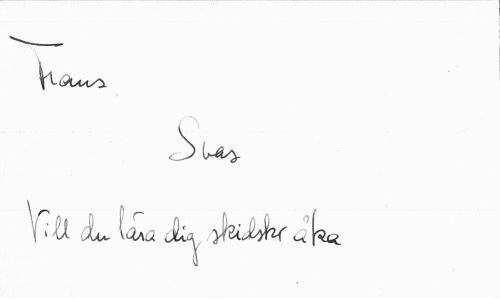 Frans
Svar
Vill du lära dig skidskr åka